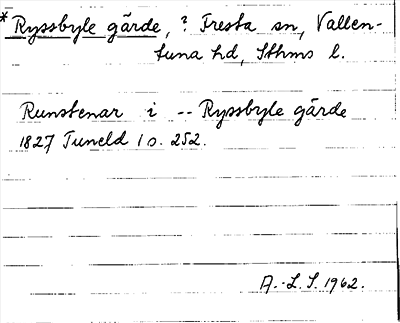 *Ryssbyle gärde, ? Fresta sn, Vallen-
tuna hd, Sthms l.
Runstenar i -- Ryssbyle gärde
1827 Tuneld 1 s. 252.
A.-L. S. 1962.